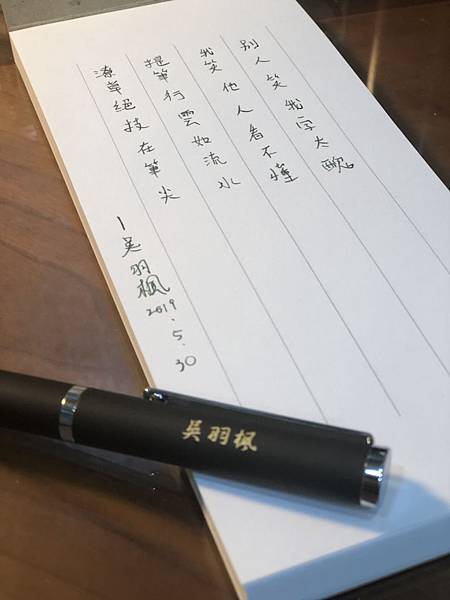 別人笑我字太醜
我笑他人看不懂
提筆行雲如流水
潦草絕技在筆尖
－吳羽楓 2019.5.30
吳羽楓